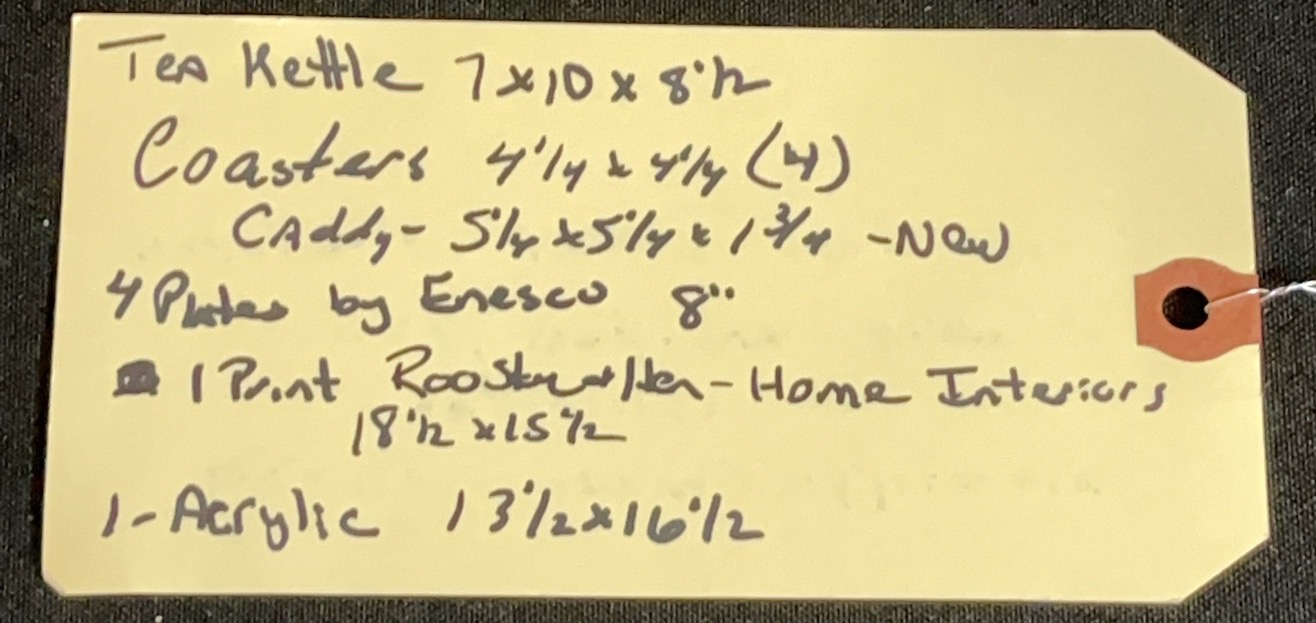 Tea Kettle 7x10 x 8 1/2
Coasters 4 1/4 x 4 1/4 (4)
CAddy- 5 1/4 x 5 1/4 x 1 3/4 -New
4 Plates by Enesco 8"
1 Print Rooster + Hen - Home Interiors
18 1/2 x 15 1/2
1- Acrylic 13 1/2 x 16 1/2